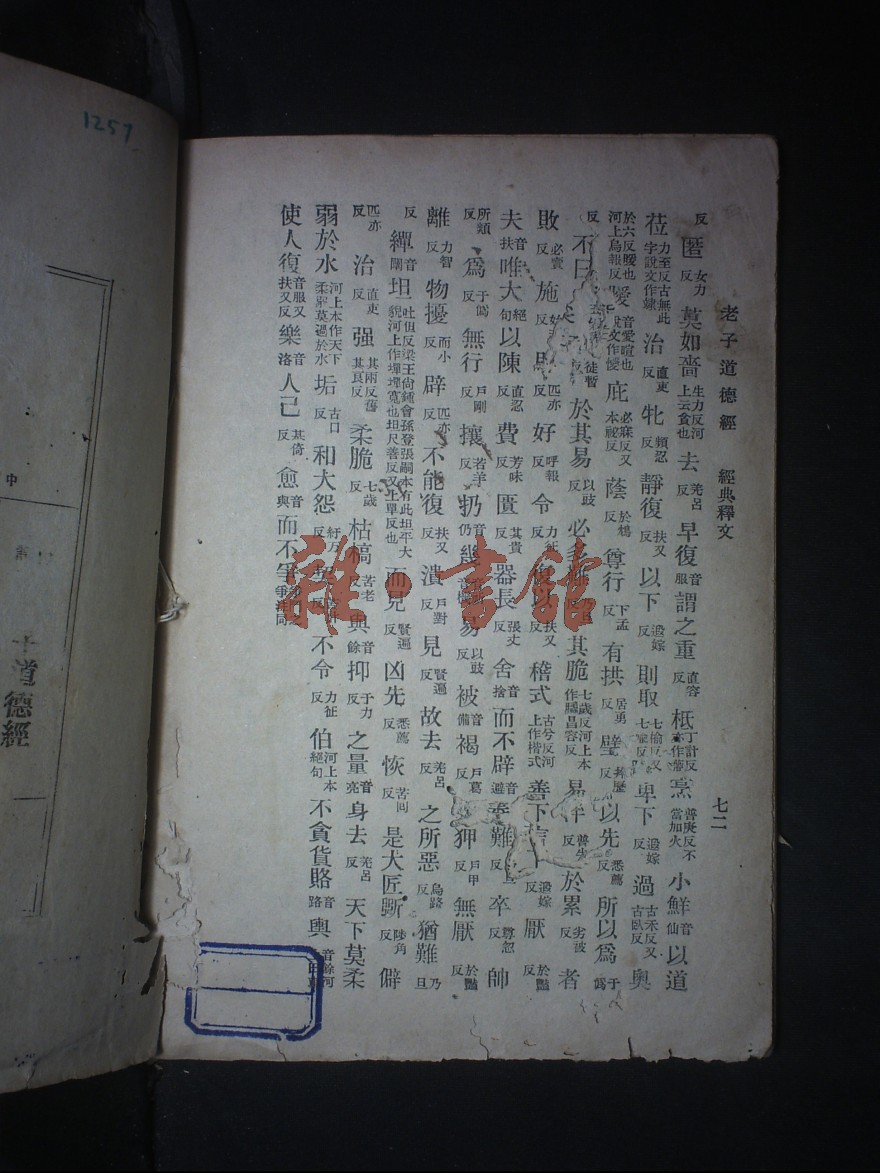 1257
道德經
老子道德經 經典釋文 七二
反 匿女力反 莫如嗇生力反河上云貪也 去羌呂反 早復音服 謂之重直容反 柢丁計反亦作蔕 烹普庚反不當加火 小鮮音仙 以道
莅力至反古無此字說文作𨽸 治直吏反 牝頻忍反 靜復扶又反 以下遐嫁反 則取七喻反又七 卑下遐嫁反 過古禾反又古臥反 奧
於六反暖也河上烏報反 愛音愛喧也 庇必寐反又 蔭於鴆反 尊行下孟反 有拱居勇反 璧 以先悉薦反 所以爲于僞
反 不曰 徒暫反 於其易以豉反 必多難 其脆七歲反河上本作膬昌容反 易 於累劣彼反 者
敗必賣反 施 匹亦反 好呼報反 令力征反 扶又反 稽式古兮反河上作楷式 善下 遐嫁反 厭於豔反
夫音扶 唯大絕句 以陳直忍反 費芳味反 匱其貴反 器長張丈反 舍音捨 而不辟音避 難 卒尊忽反 帥
所類反 爲于僞反 無行戶剛反 攘若羊反 扔音仍 幾 易以豉反 被音備 褐戶葛反 狎戶甲反 無厭於豔反
離力智反 物擾而小反 辟匹亦反 不能復扶又反 潰戶對反 見賢遍反 故去羌呂反 之所惡烏路反 猶難乃旦
反 繟音闡 坦吐但反梁王尙鍾會孫登張嗣本有此坦平大貌河上作墠墠寬也坦尺善反又上單反也 而見賢遍反 凶先悉薦反 恢苦回反 是大匠斲陟角反 僻
匹亦反 治直吏反 强其兩反舊其良反 柔脆七歲反 枯槁苦老反 與音餘 抑于力反 之量音亮 身去羌呂反 天下莫柔
弱於水河上本作天下柔弱莫過於水 垢古口反 和大怨紆万反 不令力征反 伯河上本絕句 不貪貨賂音路 輿音餘河
使人復音服又扶又反 樂音洛 人己其倚反 愈音與 而不爭
雜·書館